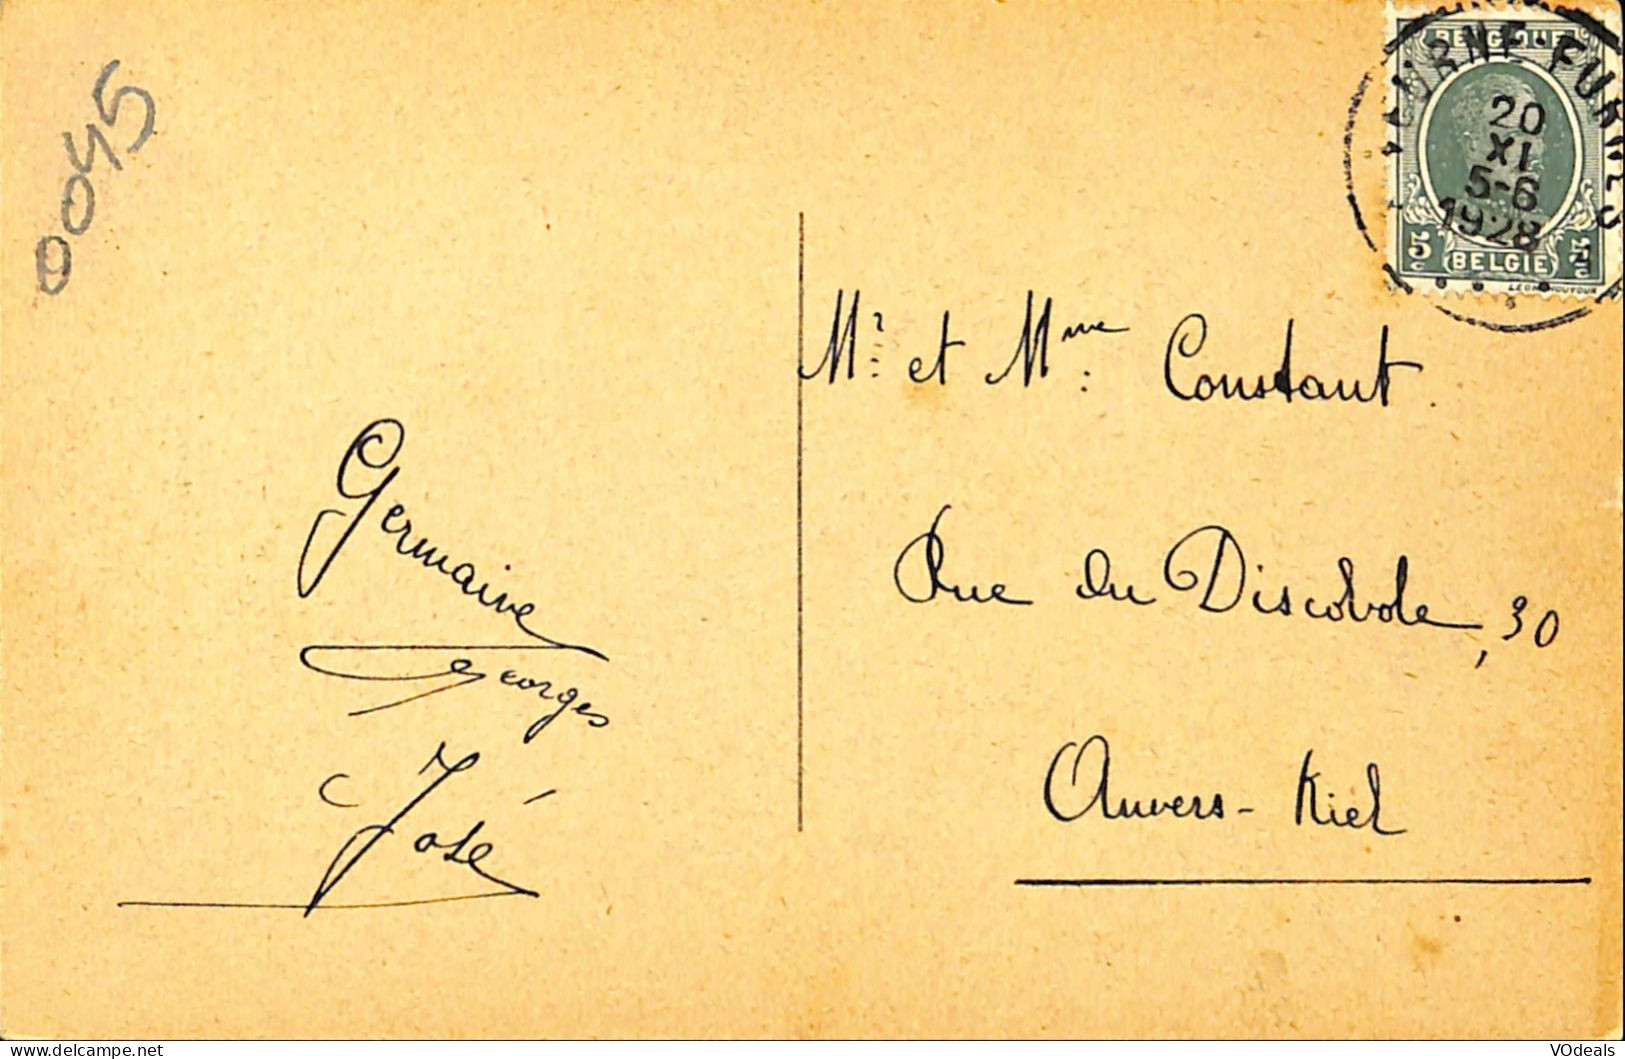 0045
BELGIQUE
VEURNE-FURNES
20
XI
5-6
1928
5c 5c
BELGIE
Mr. et Mme. Constant.
Germaine
Rue du Discobole, 30
Georges
José
Anvers - Kiel
VOdeals